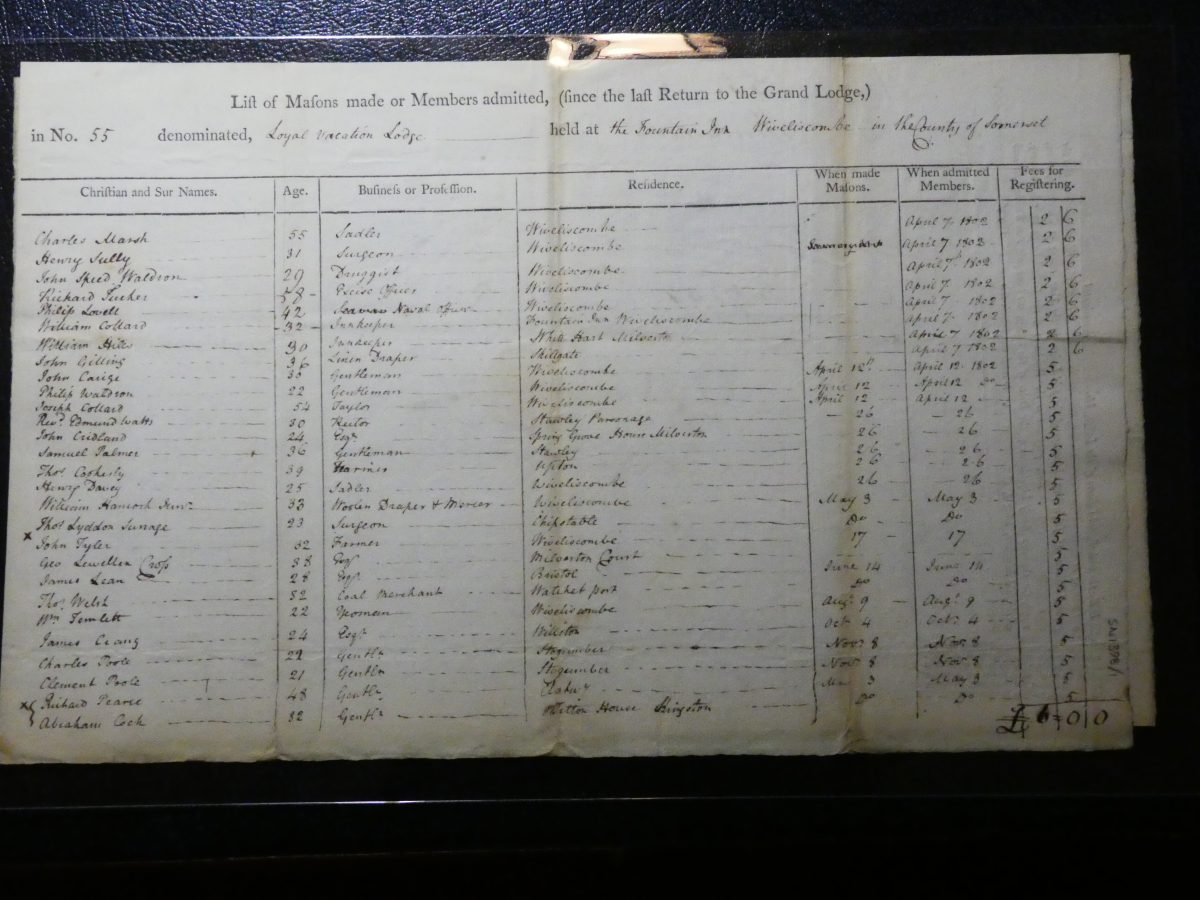 List of Masons made or Members admitted, (since the last Return to the Grand Lodge,)
in No. 55 denominated, Loyal Vacation Lodge held at the Fountain Inn Wiveliscombe in the County of Somerset
Christian and Sur Names. Age. Business or Profession. Residence. When made Masons. When admitted Members. Fees for Registering.
Charles Marsh 55 Sadler Wiveliscombe April 7. 1802 2 6
Henry Sully 31 Surgeon Wiveliscombe April 7 1802 2 6
John Speed Waldron 29 Druggist Wiveliscombe April 7 1802 2 6
Richard Tucker 58 Excise Officer Wiveliscombe April 7 1802 2 6
Philip Lovell 42 Naval Officer Wiveliscombe April 7 1802 2 6
William Collard 32 Innkeeper Fountain Inn Wiveliscombe April 7 1802 2 6
William Hill 30 Innkeeper White Hart Milverton April 7 1802 2 6
John Gilling 36 Linen Draper Skilgate April 7 1802 2 6
John 35 Gentleman Wiveliscombe April 12th April 12. 1802 5
Philip Waldron 22 Gentleman Wiveliscombe April 12 April 12 Do 5
Joseph Collard 54 Taylor Wiveliscombe April 12 April 12 5
Revd. Edmund Watts 30 Rector Stawley Parsonage 26 26 5
John Cridland 24 Esqr. Spring Grove House Milverton 26 26 5
Samuel Palmer 36 Gentleman Stawley 26 26 5
Thos. 39 Farmer Upton 26 26 5
Henry Davey 25 Sadler Wiveliscombe 26 26 5
William Hancock Junr. 33 Woolen Draper & Mercer Wiveliscombe May 3 May 3 5
Thos Lyddon Surrage 23 Surgeon Wiveliscombe Do Do 5
x John Tyler 32 Farmer Chipstable 17 17 5
Geo Lewellen Cross 38 Esqr. Milverton Court 5
James Lean 28 Esqr. Bristol June 14 June 14 5
Thos. Welsh 52 Coal Merchant Watchet port Do Do 5
Wm. Temlett 22 Yeoman Wiveliscombe Augt. 9 Augt. 9 5
James Crang 24 Esqr. Williton Oct 4 Octr. 4 5
Charles Poole 22 Gentln Stogumber Novr 8 Novr. 8 5
Clement Poole 21 Gentln Stogumber Novr 8 Novr. 8 5
x Richard Pearse 48 Gentln 3 May 3 5
Abraham Cock 32 Gentln House Kingston Do Do 5
£ 6 = 0 0